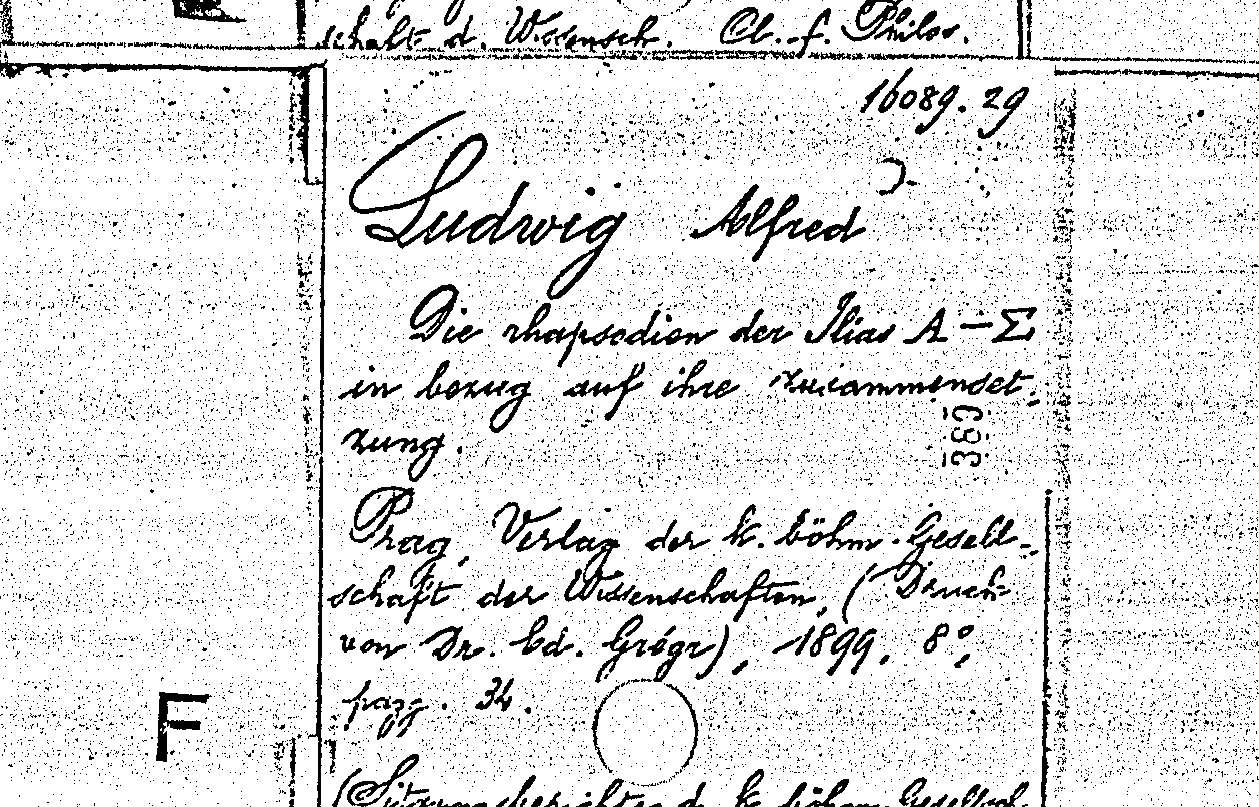 schaft d. Wissensch. Cl. f. Philos.
16089.29
Ludwig Alfred
Die rhapsodien der Ilias A – Σ
in bezug auf ihre zusammenset-
zung.
389
Prag, Verlag der k. böhm. Gesell-
schaft der Wissenschaften, (Druck
von Dr. Ed. Grégr), 1899, 8°,
pagg. 34.
F
(Sitzungsberichten d. k. böhm. Gesellsch.